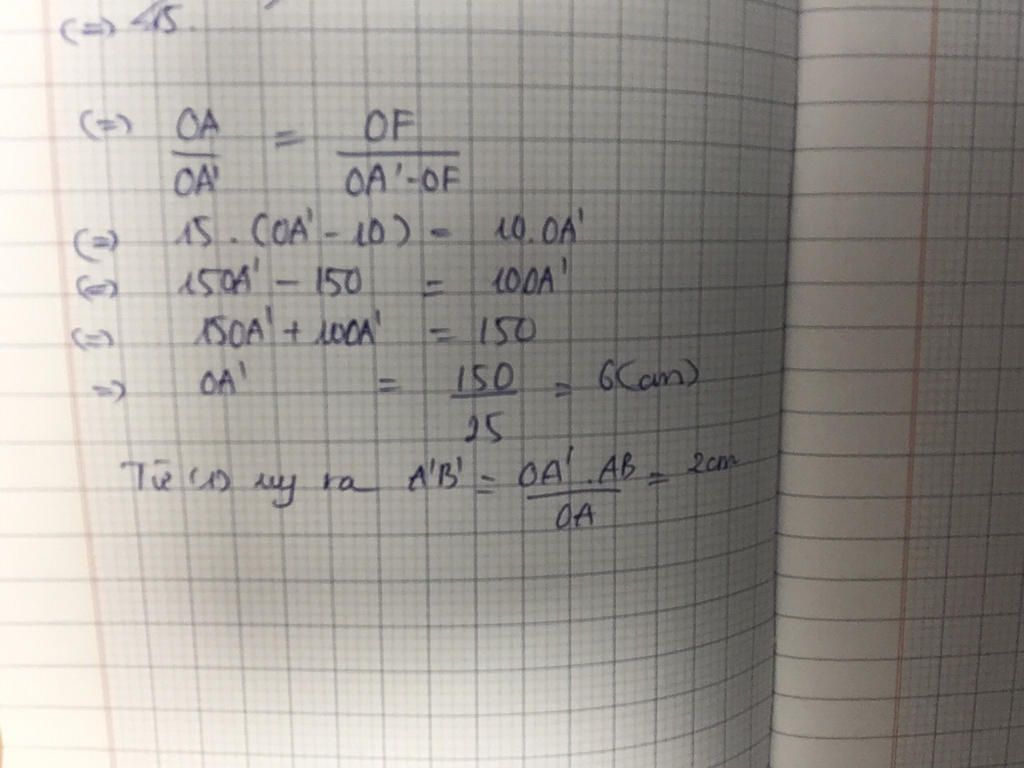 (=) 15.
(=) OA/OA' = OF/OA'-OF
(=) 15.(OA' - 10) = 10.OA'
(=) 15OA' - 150 = 10OA'
(=) 15OA' + 10OA' = 150
=) OA' = 150/25 = 6(cm)
Từ (1) suy ra A'B' = OA'.AB/OA = 2cm